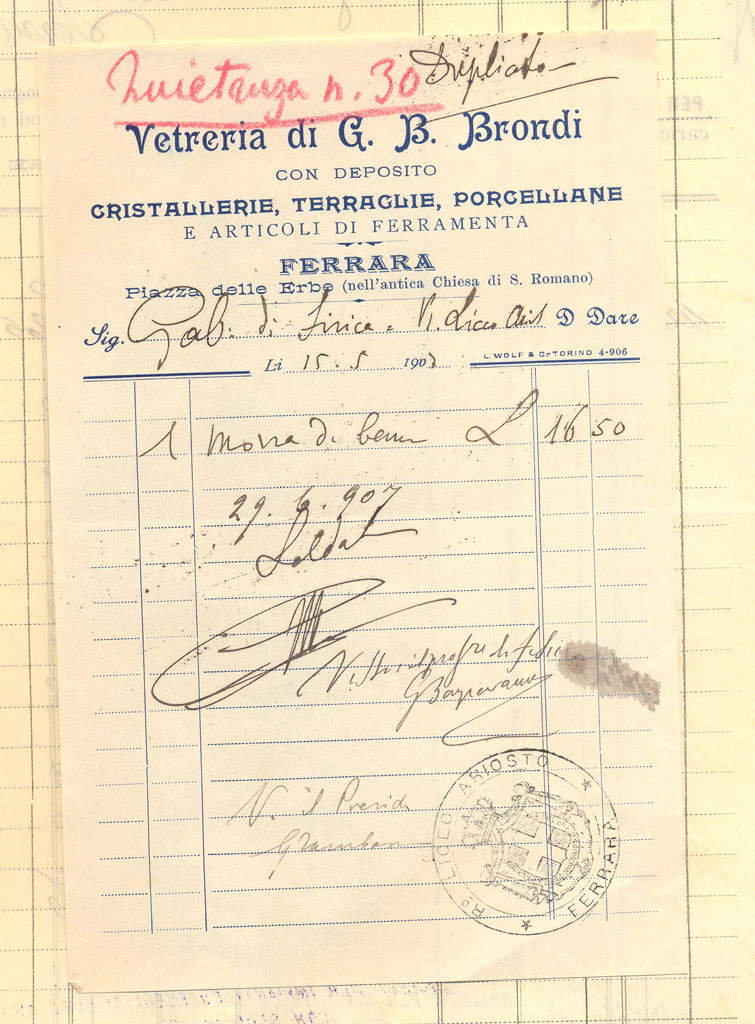 Quietanza n. 30
Duplicato
Vetreria di G. B. Brondi
CON DEPOSITO
CRISTALLERIE, TERRAGLIE, PORCELLANE
E ARTICOLI DI FERRAMENTA
FERRARA
Piazza delle Erbe (nell'antica Chiesa di S. Romano)
Sig. Gab. di Fisica R. Liceo D Dare
Li 15. 5 1907
L. WOLF & C. TORINO 4-906
1 di L 16 50
29. 6. 907
Saldat
V. il Preside
Ro LICEO ARIOSTO
FERRARA